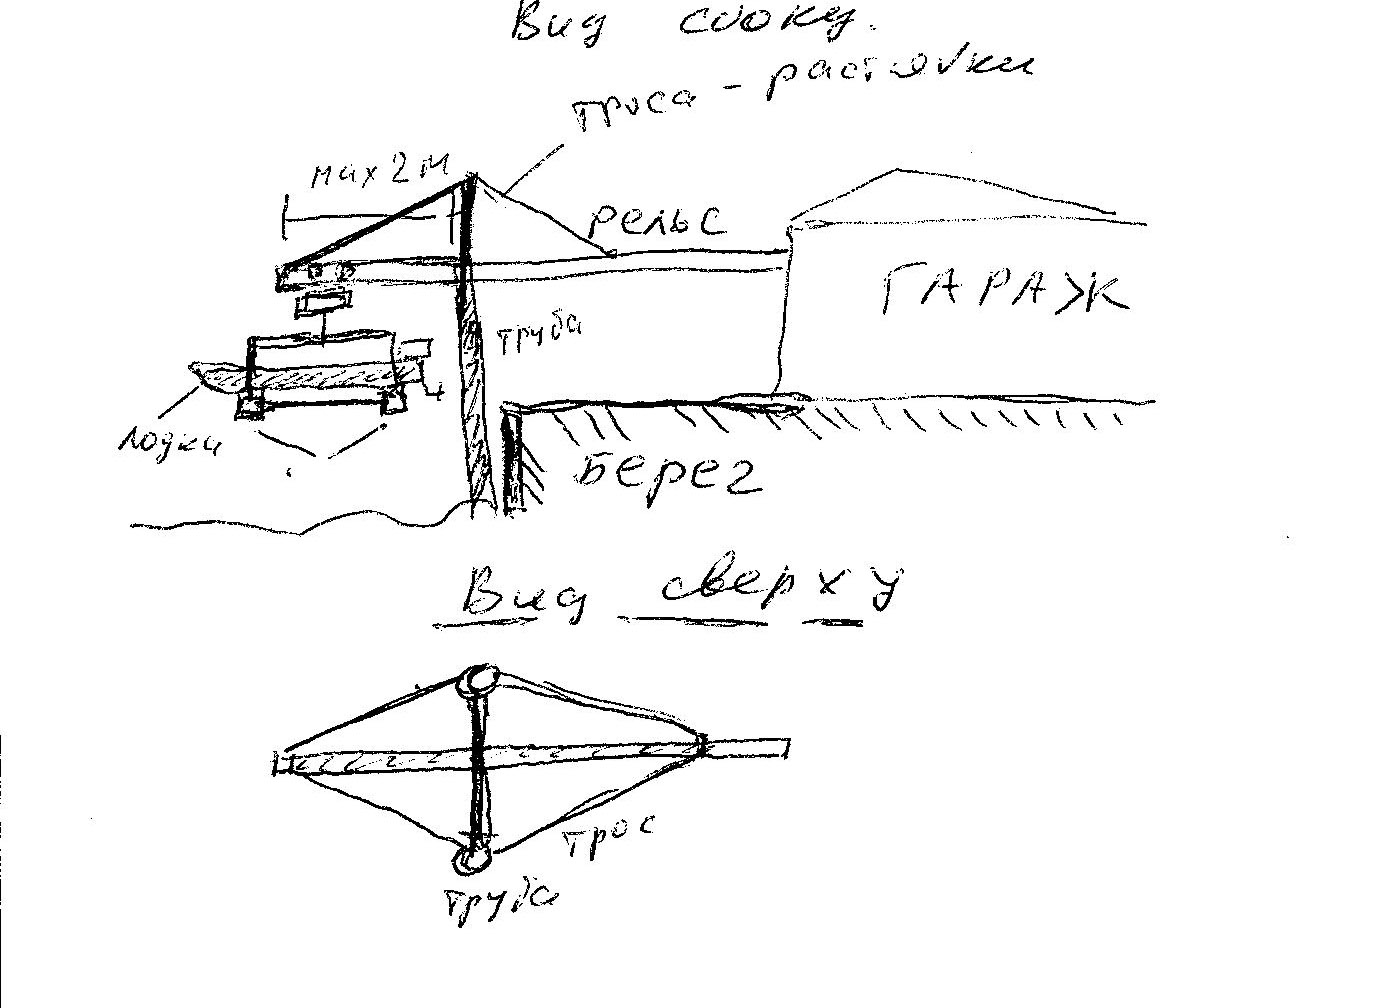 Вид сбоку.
троса - растяжки
мах 2 м
рельс
ГАРАЖ
труба
лодки
Берег
Вид сверху
трос
труба